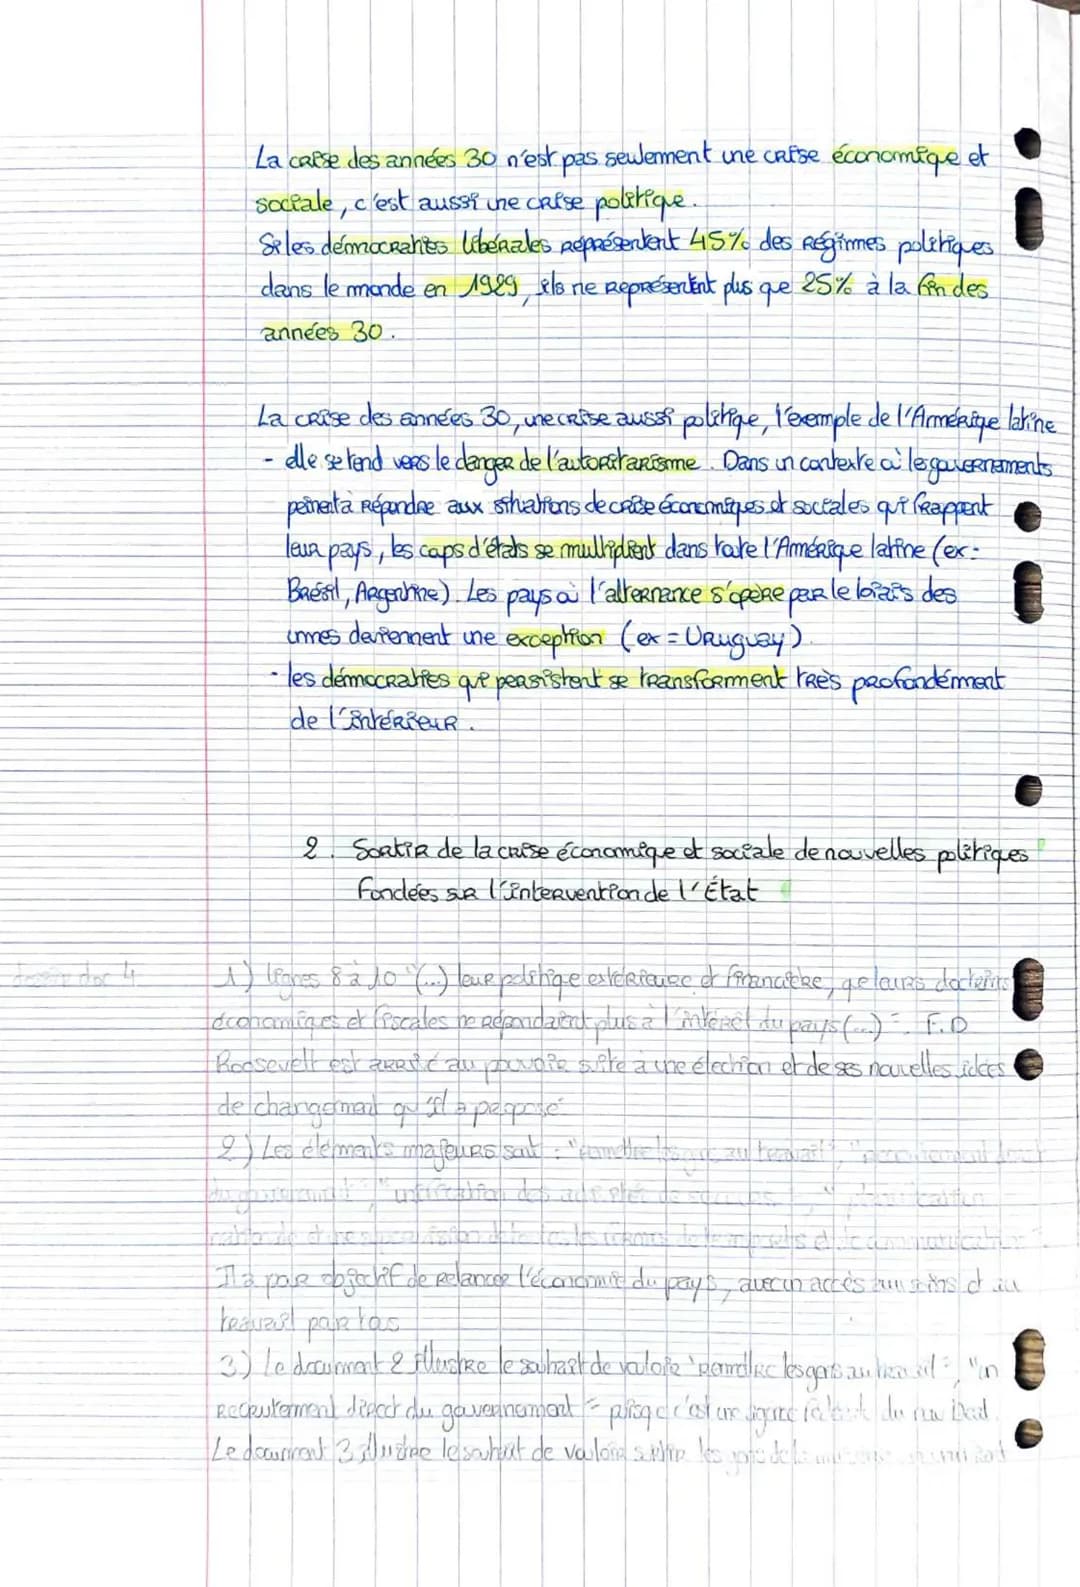 La crise des années 30 n'est pas seulement une crise économique et
sociale, c'est aussi une crise politique.
Si les démocraties libérales représentent 45% des régimes politiques
dans le monde en 1929, ils ne représentent plus que 25% à la fin des
années 30.
La crise des années 30, une crise aussi politique, l'exemple de l'Amérique latine
- elle se tend vers le danger de l'autoritarisme. Dans un contexte où les gouvernements
peinent à répondre aux situations de crise économiques et sociales qui frappent
leur pays, les caps d'états se multiplient dans toute l'Amérique latine (ex:
Brésil, Argentine). Les pays où l'alternance s'opère par le biais des
urnes deviennent une exception (ex = Uruguay).
- les démocraties qui persistent se transforment très profondément
de l'intérieur.
2. Sortir de la crise économique et sociale de nouvelles politiques
fondées sur l'intervention de l'État
doc 4
1) lignes 8 à 10 "(...) leur politique extérieure et financière, que leurs doctrines
économiques et fiscales ne répondaient plus à l'intérêt du pays (...)". F.D
Roosevelt est arrivé au pouvoir suite à une élection et de ses nouvelles idées
de changement qu'il a proposé
2) Les éléments majeurs sont : "remettre les gens au travail",
du gouvernement
Il a pour objectif de relancer l'économie du pays, avec un accès aux soins et au
travail pour tous
3) Le document 2 illustre le souhait de vouloir "remettre les gens au travail", "un
recrutement direct du gouvernement" puisque c'est une du new Deal.
Le document 3 illustre le souhait de vouloir les